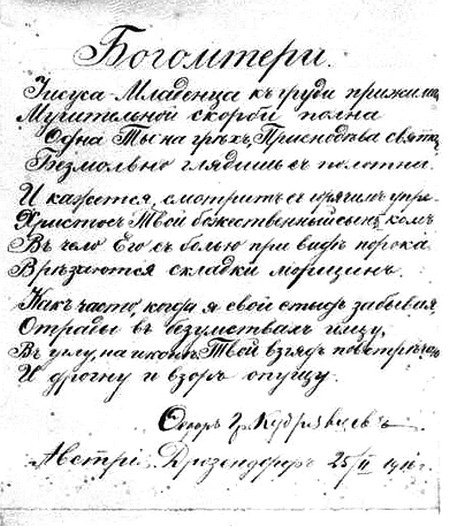 Богоматери.
Iисуса-Младенца къ груди прижимая,
Мучительной скорби полна
Одна Ты на грѣхъ, Приснодѣва святая,
Безмолвно глядишь съ полотна.
И кажется, смотритъ съ горячимъ упре-
Христосъ Твой божественный сынъ, комъ
Въ чело Его съ болью при видѣ порока
Врѣзаются складки морщинъ.
Какъ часто, когда я свой стыдъ забывая,
Отрады въ безумствахъ ищу,
Въ углу, на иконѣ Твой взглядъ повстрѣчаю
И дрогну и взоръ опущу.
Кудрявцевъ
Австрія. Дрозендорфъ 25/II 1916 г.